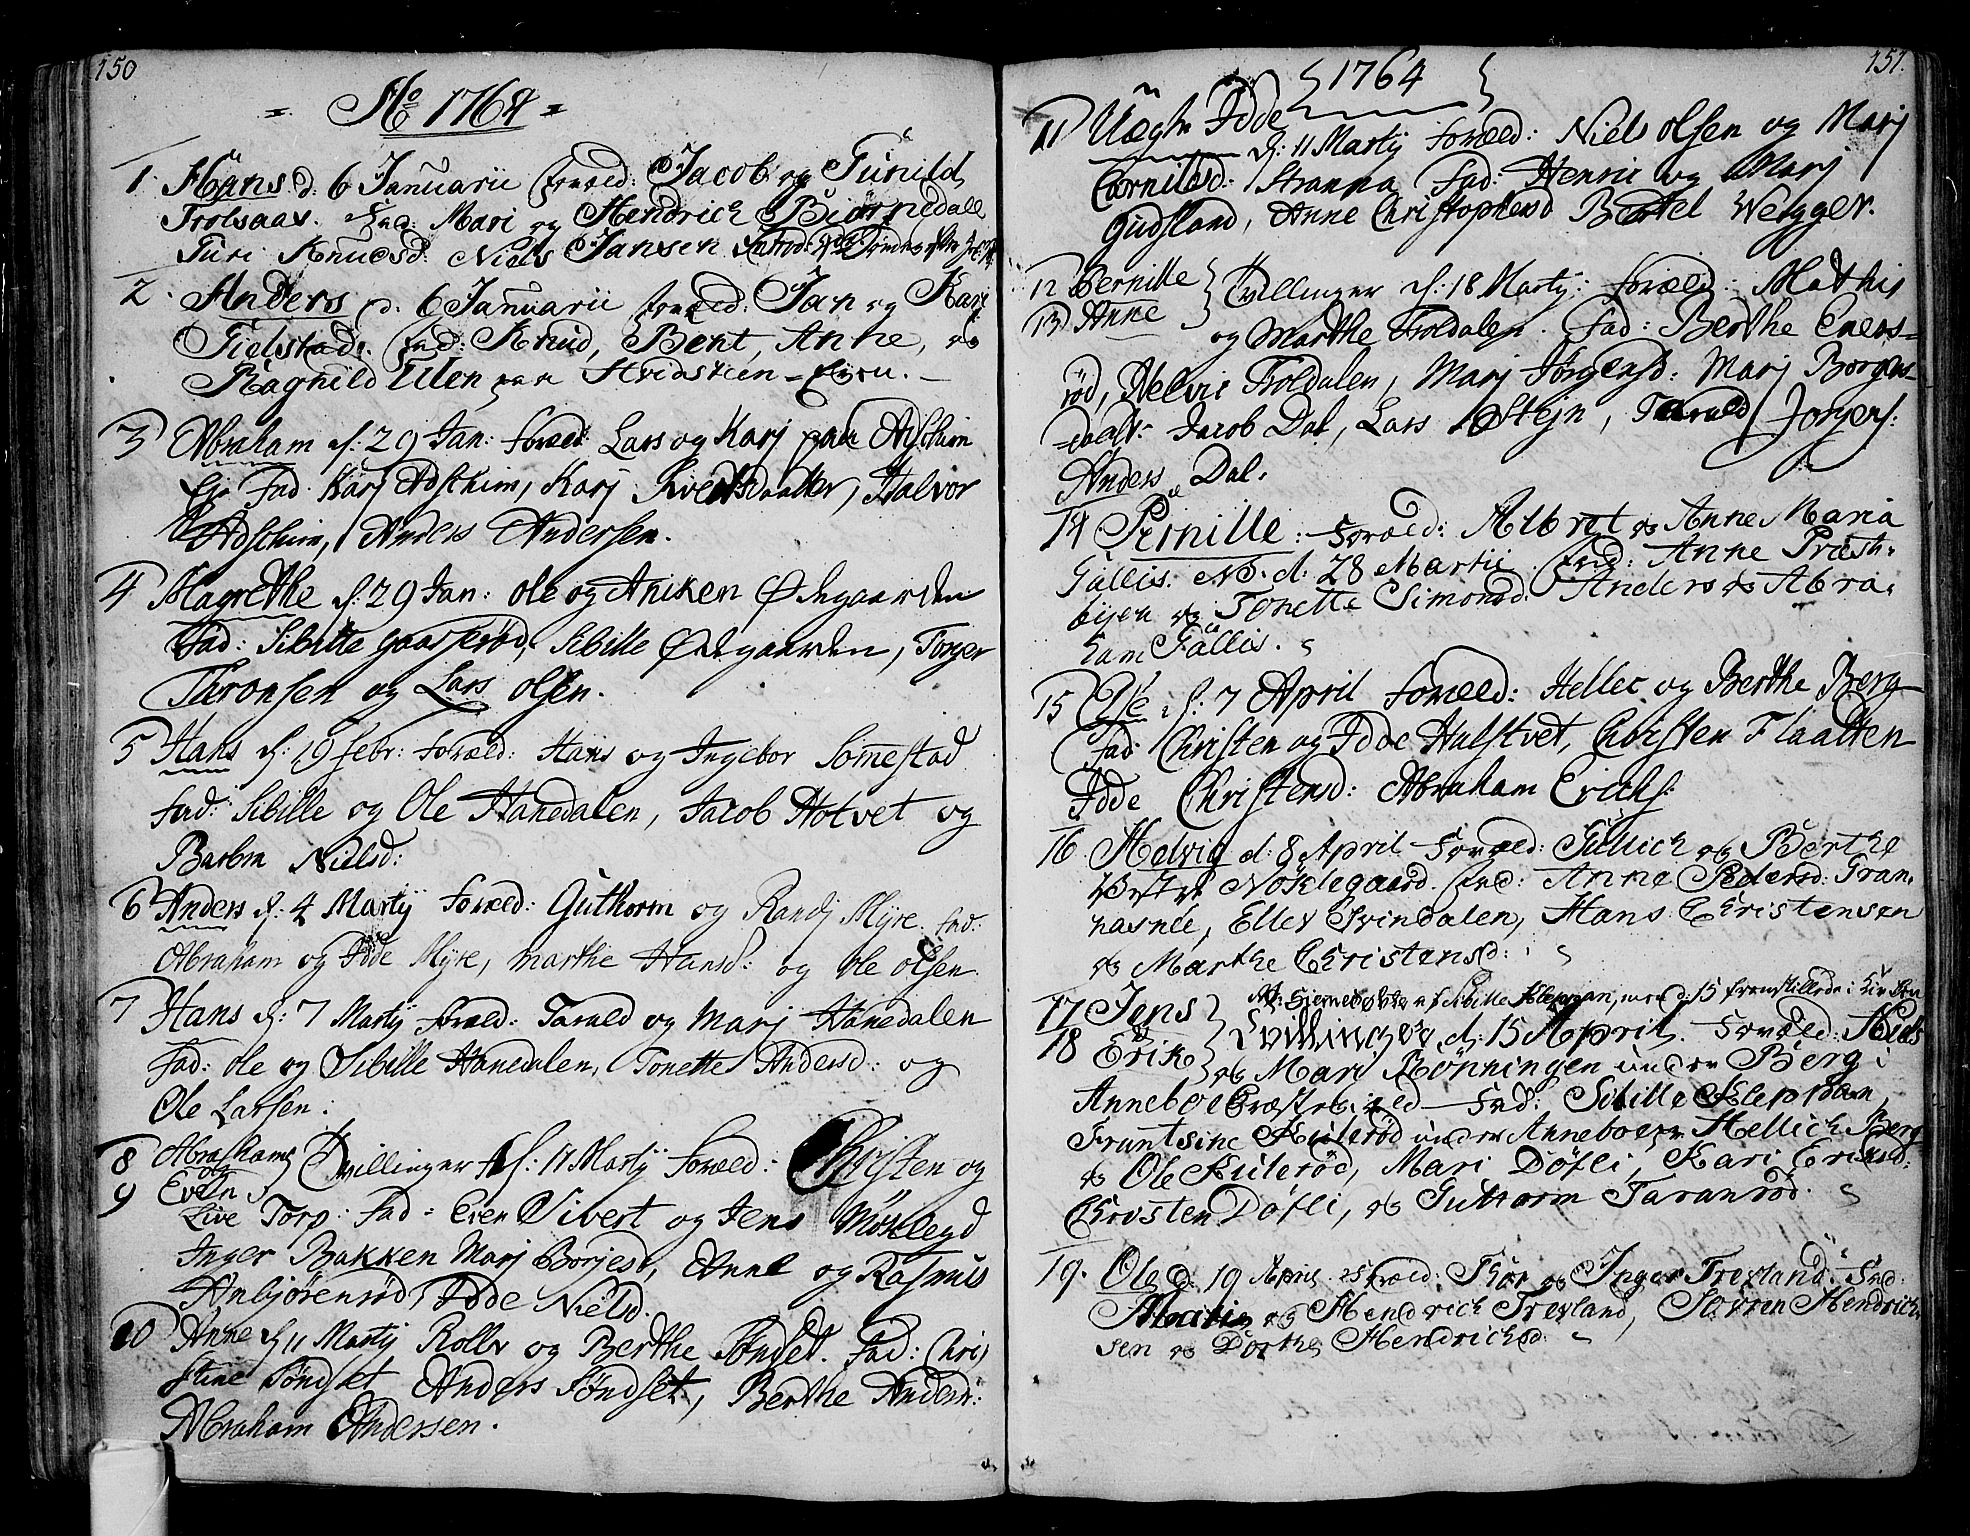 150
Ao 1764
1. Hans d: 6 Januarii foræld: Jacob og Gunild
Trolsaas. Fad: Mari og Hendrich Biørnedall
Turi Knudsd: Niels Jansen
2. Anders d. 6 Januarii foræld: Jan og Kari
Gielstad. fad: Knud, Bent, Anne, og
Ragnild Ulen paa Hvidsteen-Eyen.
3 Abraham d: 29 Jan: foræld: Lars og Karj paa Adschim
Eje Fad: Karj Adschim, Karj Svendsdaatter, Halvor
Adschim, Anders Andersen.
4 Magrethe d: 29 Jan: Ole og Aniken Ødegaarden
Fad: Sibille Gaaserød, Sibille Ødegaarden, Torger
Taronsen og Lars Olsen.
5 Hans d: 19 Febr: Foræld: Hans og Ingebor Somestad
Fad: Sibille og Ole Hanedalen, Jacob Holvet og
Barbra Nielsd:
6 Anders d: 4 Martij Foræld: Guthorm og Randj Myre. fad:
Abraham og Idde Myre, Marthe Hansd: og Ole Olsen.
7 Hans d: 7 Martij foræld: Tarald og Marj Hanedalen
Fad: Ole og Sibille Hanedalen, Tonette Andersd: og
Ole Larsen:
8 Abraham
og Tvillinger d: 11 Martij Foræld: Christen og
9 Even
Live Torp: Fad: Even Sivert og Jens Møklegd
Inger Bakken Marj Borjesd, Anne og Rasmus
Anbjørenrød, Idde Nielsd.
10 Anne d: 11 Martij Rolle og Berthe Søndset. Fad: Chri
stine Søndset Anders Søndset, Berthe Andersd:
Abraham Andersen.
151.
1764
11 Idde d: 11 Martij Foræld: Niels Olsen og Marj
Cornilsd: Stranna Fad: Henric og Marj
Gudsland, Anne Christophersd Bertel Wegger.
12 Pernille
Tvillinger d: 18 Martij: Foræld: Mathis
13 Anne
og Marthe Froldalen. Fad: Berthe Evers-
rød, Helvic Froldalen, Marj Jørgensd: Marj Borges-
daatt: Jacob Dal, Lars Stejn, Tarald Jorgens:
Anders Dal.
14 Pernille: Foræld: Albret og Anne Maria
Gallis. d: 28 Martii. Fad: Anne Præste-
byen og Tonette Simonsd: Anders og Abra-
ham Gallis.
15 Ole d: 7 April Foræld: Hellec og Berthe Berg
Fad: Christen og Idde Hulstvet, Christen Flaatten
Idde Christensd: Abraham Erichs:
16 Helvig d: 8 April Foræld: Gullich og Berthe
Nøklegaard. fad: Anne Pedersd: Gran-
nasnee, Eller Svindalen, Hans Christensen
og Marthe Christensd:
Nb: Hiemedøbte af Sibille Klepaan, men d: 15 fremstillede i Kirken
17 Jens
Tvillinger d: 15 April. Foræld: Niels
18 Erik
og Mari Rønningen under Berg i
Anneboe Præstegield Fad: Sibille Kleppaan
Frantsine Kulerød under Anneboe Hellich Berg
og Ole Kulerød, Mari Døfli, Kari Eriksd:
Chrsten Døfli, og Guttorm Taranrød.
19. Ole d: 19 April Foræld: Thor og Inger Trevland. Fad:
og Hendrich Trevland, Sørren Hendrich-
sen og Dorthe Hendrichsd: